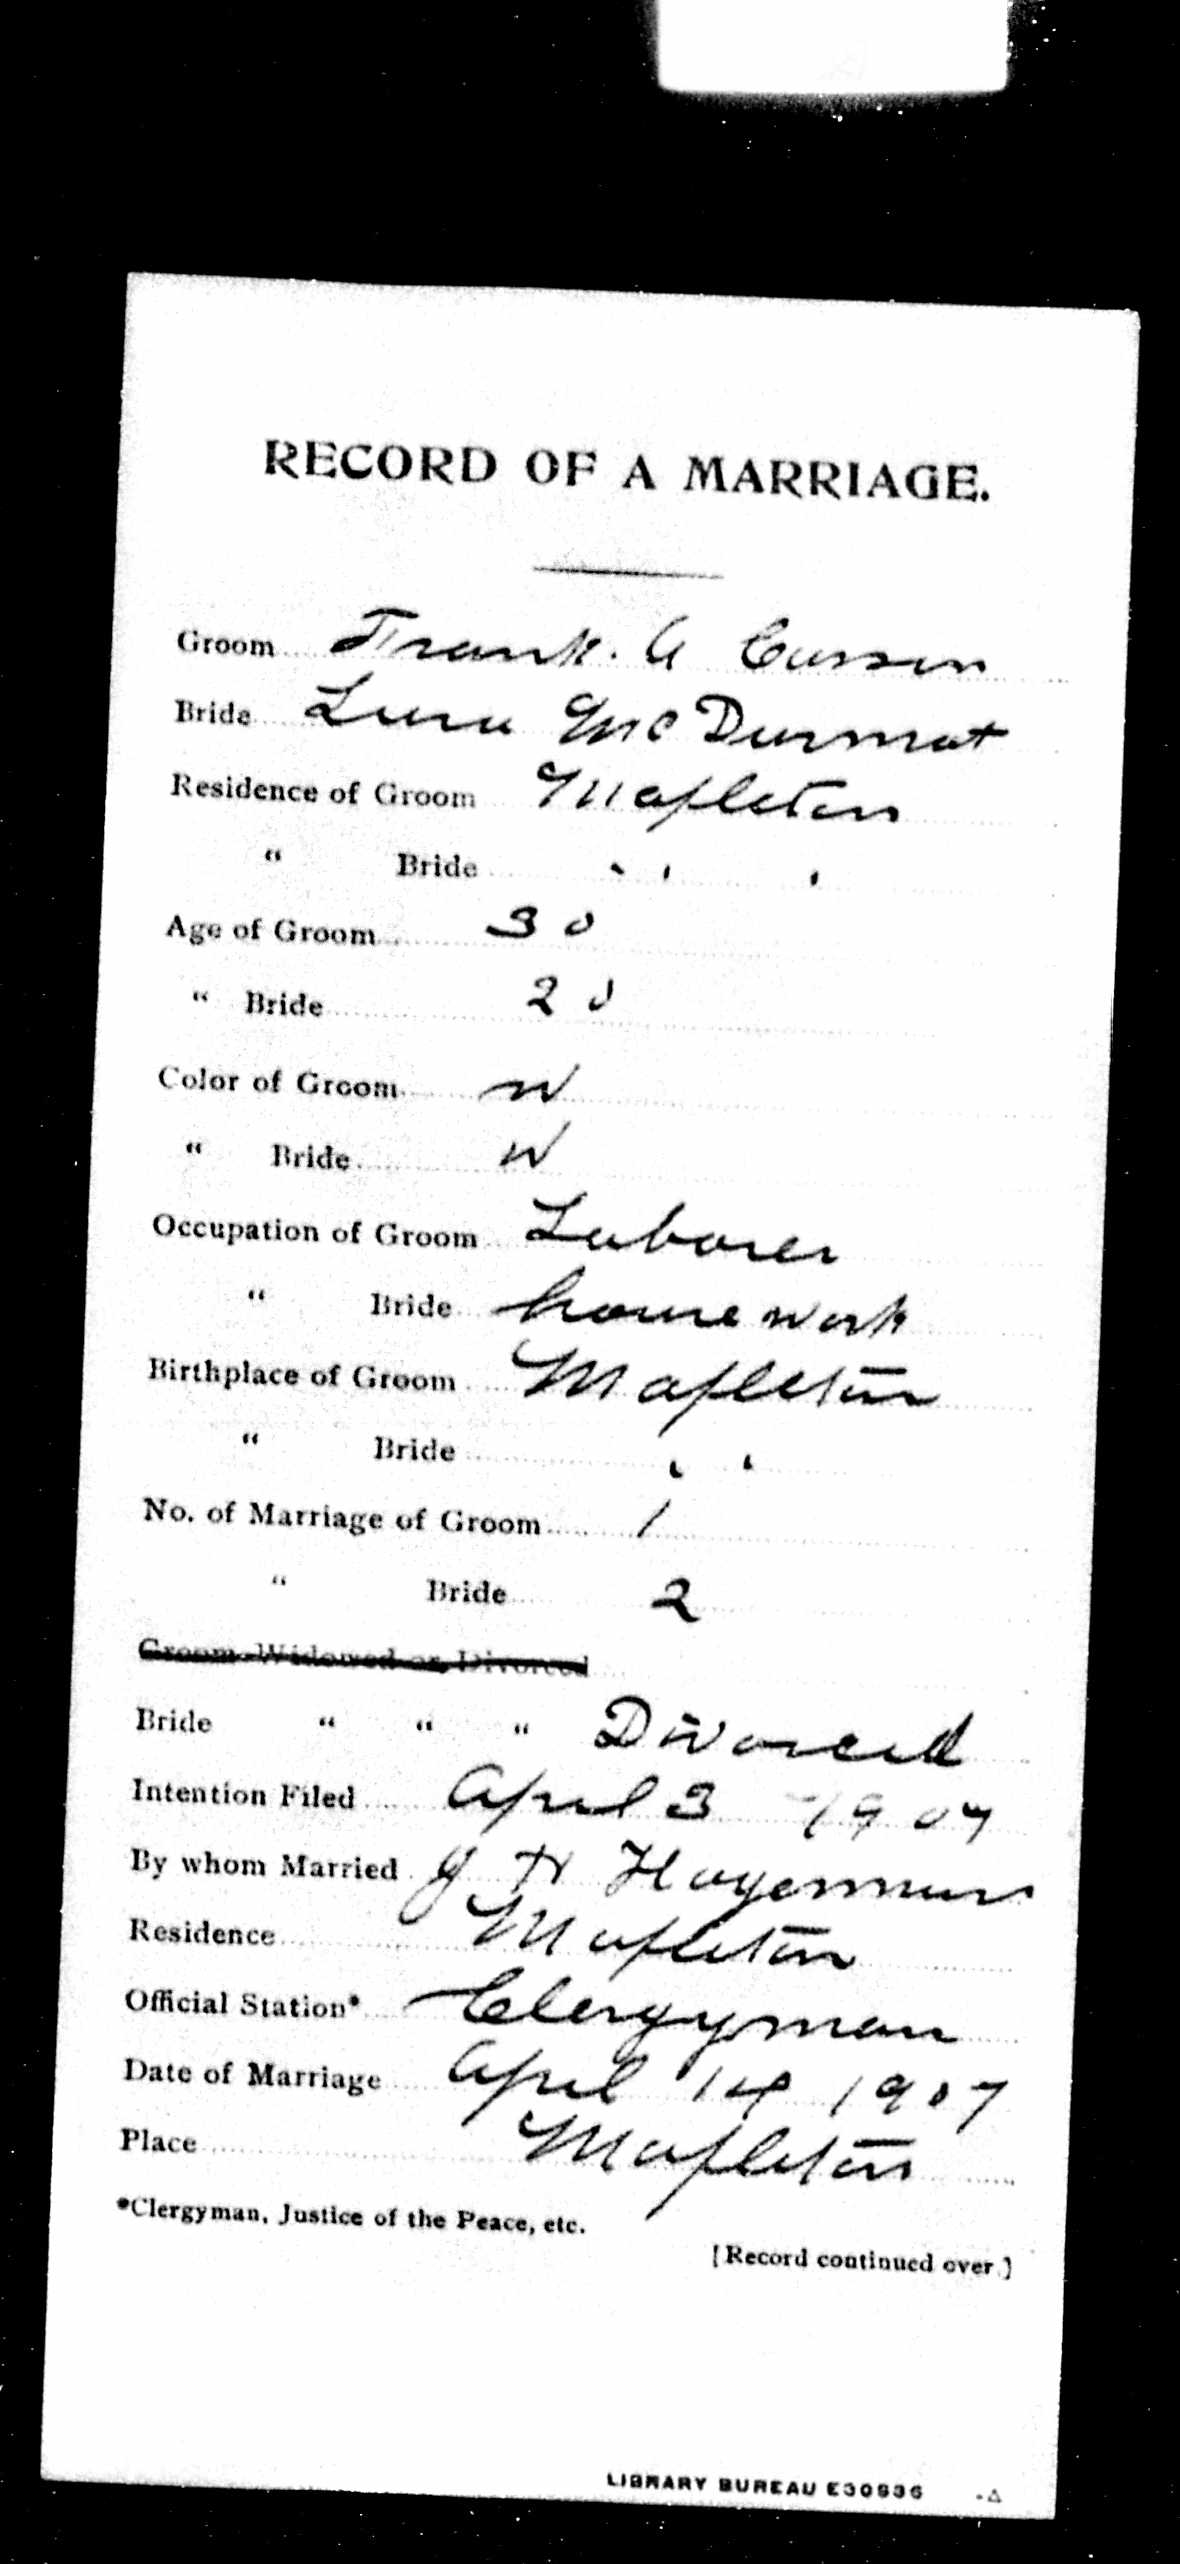 RECORD OF A MARRIAGE.
Groom Frank. A
Bride McDurmot
Residence of Groom Mapleton
" Bride " "
Age of Groom 30
" Bride 20
Color of Groom W
" Bride W
Occupation of Groom Laborer
" Bride house work
Birthplace of Groom Mapleton
" Bride " "
No. of Marriage of Groom 1
" Bride 2
Groom Widowed or Divorced
Bride " " " Divorced
Intention Filed April 3 - 1907
By whom Married J H Hagerman
Residence Mapleton
Official Station* Clergyman
Date of Marriage April 14 1907
Place Mapleton
*Clergyman, Justice of the Peace, etc.
[Record continued over.]
LIBRARY BUREAU E30636